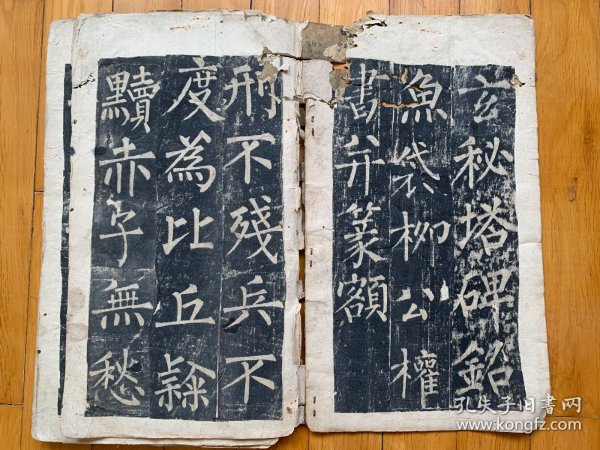 玄秘塔碑銘
魚袋柳公權
書并篆額
刑不殘兵不
度為比丘
黷赤子無愁
孔夫子旧書网
www.kongfz.com